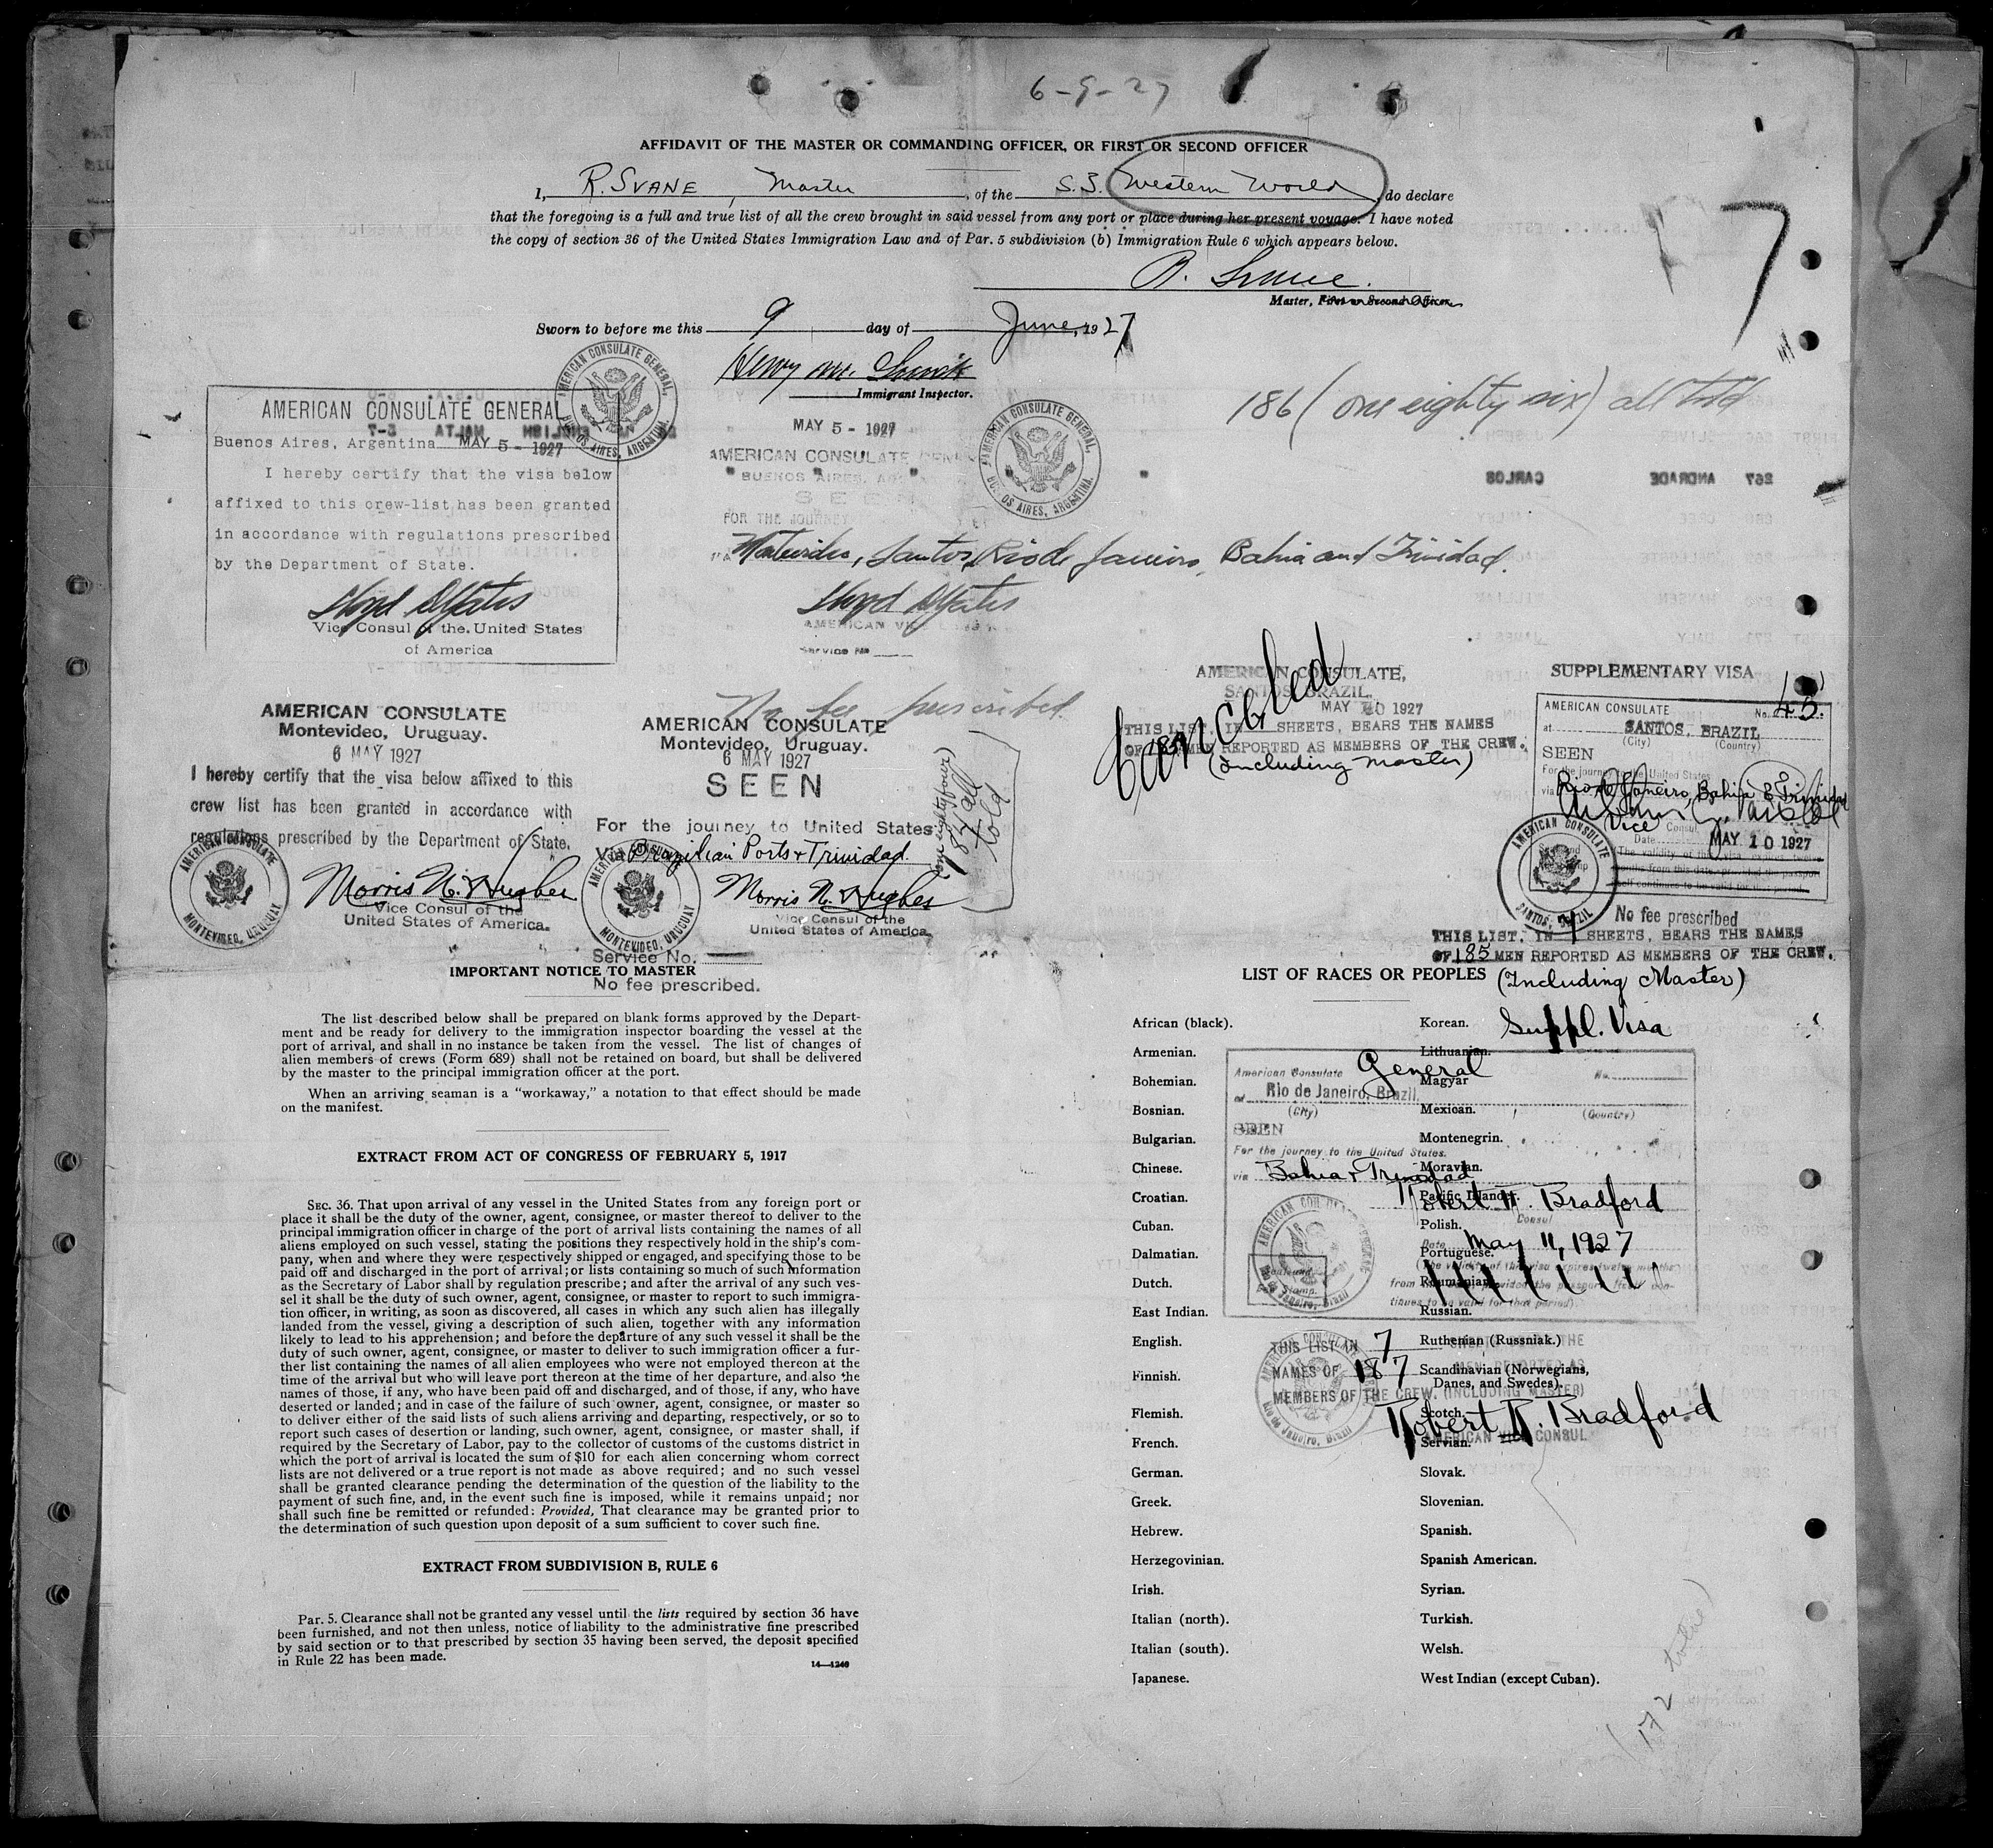 6-9-27
AFFIDAVIT OF THE MASTER OR COMMANDING OFFICER, OR FIRST OR SECOND OFFICER
I, R. SVANE, Master, of the S.S. Western World, do declare
that the foregoing is a full and true list of all the crew brought in said vessel from any port or place during her present voyage. I have noted
the copy of section 36 of the United States Immigration Law and of Par. 5 subdivision (b) Immigration Rule 6 which appears below.
7
R. Svane.
Master, First or Second Officer.
Sworn to before me this 9 day of June, 1927
Henry
Immigrant Inspector.
186 (one eighty six) all told
AMERICAN CONSULATE GENERAL
Buenos Aires, Argentina MAY 5 - 1927
I hereby certify that the visa below
affixed to this crew-list has been granted
in accordance with regulations prescribed
by the Department of State.
Vice Consul of the United States
of America
AMERICAN CONSULATE GENERAL, BUENOS AIRES, ARGENTINA.
MAY 5 - 1927
AMERICAN CONSULATE GENERAL
BUENOS AIRES,
SEEN
FOR THE JOURNEY
Montevideo, Santos, Rio de Janeiro, Bahia and Trinidad.
AMERICAN VICE
Service No
No fee prescribed.
AMERICAN CONSULATE GENERAL, BUENOS AIRES, ARGENTINA.
AMERICAN CONSULATE
Montevideo, Uruguay.
6 MAY 1927
I hereby certify that the visa below affixed to this
crew list has been granted in accordance with
regulations prescribed by the Department of State.
Morris N. Hughes
Vice Consul of the
United States of America.
AMERICAN CONSULATE MONTEVIDEO, URUGUAY
AMERICAN CONSULATE
Montevideo, Uruguay.
6 MAY 1927
SEEN
For the journey to United States
Via Brazilian Ports & Trinidad.
Morris N. Hughes
Vice Consul of the
United States of America.
AMERICAN CONSULATE MONTEVIDEO, URUGUAY
Service No.
No fee prescribed.
(one eighty four)
184 all
told
Canceled
AMERICAN CONSULATE,
SANTOS, BRAZIL.
MAY 10 1927
THIS LIST, IN SHEETS, BEARS THE NAMES
OF 185 MEN REPORTED AS MEMBERS OF THE CREW.
(including master)
SUPPLEMENTARY VISA
AMERICAN CONSULATE No. 45
at SANTOS, BRAZIL
(City) (Country)
SEEN
For the journey to the United States
via Rio de Janeiro, Bahia & Trinidad
Vice Consul
Date MAY 10 1927
AMERICAN CONSULATE SANTOS, BRAZIL
No fee prescribed
THIS LIST, IN 7 SHEETS, BEARS THE NAMES
OF 185 MEN REPORTED AS MEMBERS OF THE CREW.
(Including Master)
IMPORTANT NOTICE TO MASTER
The list described below shall be prepared on blank forms approved by the Depart-
ment and be ready for delivery to the immigration inspector boarding the vessel at the
port of arrival, and shall in no instance be taken from the vessel. The list of changes of
alien members of crews (Form 689) shall not be retained on board, but shall be delivered
by the master to the principal immigration officer at the port.
When an arriving seaman is a "workaway," a notation to that effect should be made
on the manifest.
EXTRACT FROM ACT OF CONGRESS OF FEBRUARY 5, 1917
SEC. 36. That upon arrival of any vessel in the United States from any foreign port or
place it shall be the duty of the owner, agent, consignee, or master thereof to deliver to the
principal immigration officer in charge of the port of arrival lists containing the names of all
aliens employed on such vessel, stating the positions they respectively hold in the ship's com-
pany, when and where they were respectively shipped or engaged, and specifying those to be
paid off and discharged in the port of arrival; or lists containing so much of such information
as the Secretary of Labor shall by regulation prescribe; and after the arrival of any such ves-
sel it shall be the duty of such owner, agent, consignee, or master to report to such immigra-
tion officer, in writing, as soon as discovered, all cases in which any such alien has illegally
landed from the vessel, giving a description of such alien, together with any information
likely to lead to his apprehension; and before the departure of any such vessel it shall be the
duty of such owner, agent, consignee, or master to deliver to such immigration officer a fur-
ther list containing the names of all alien employees who were not employed thereon at the
time of the arrival but who will leave port thereon at the time of her departure, and also the
names of those, if any, who have been paid off and discharged, and of those, if any, who have
deserted or landed; and in case of the failure of such owner, agent, consignee, or master so
to deliver either of the said lists of such aliens arriving and departing, respectively, or so to
report such cases of desertion or landing, such owner, agent, consignee, or master shall, if
required by the Secretary of Labor, pay to the collector of customs of the customs district in
which the port of arrival is located the sum of $10 for each alien concerning whom correct
lists are not delivered or a true report is not made as above required; and no such vessel
shall be granted clearance pending the determination of the question of the liability to the
payment of such fine, and, in the event such fine is imposed, while it remains unpaid; nor
shall such fine be remitted or refunded: Provided, That clearance may be granted prior to
the determination of such question upon deposit of a sum sufficient to cover such fine.
EXTRACT FROM SUBDIVISION B, RULE 6
Par. 5. Clearance shall not be granted any vessel until the lists required by section 36 have
been furnished, and not then unless, notice of liability to the administrative fine prescribed
by said section or to that prescribed by section 35 having been served, the deposit specified
in Rule 22 has been made.
14—1240
LIST OF RACES OR PEOPLES
African (black).
Armenian.
Bohemian.
Bosnian.
Bulgarian.
Chinese.
Croatian.
Cuban.
Dalmatian.
Dutch.
East Indian.
English.
Finnish.
Flemish.
French.
German.
Greek.
Hebrew.
Herzegovinian.
Irish.
Italian (north).
Italian (south).
Japanese.
Korean.
Lithuanian.
Magyar
Mexican.
Montenegrin.
Moravian.
Pacific Islander.
Polish.
Portuguese.
Roumanian.
Russian.
Ruthenian (Russniak.)
Scandinavian (Norwegians,
Danes, and Swedes).
Scotch.
Servian.
Slovak.
Slovenian.
Spanish.
Spanish American.
Syrian.
Turkish.
Welsh.
West Indian (except Cuban).
Suppl. Visa
American Consulate General No.
at Rio de Janeiro, Brazil.
(City) (Country)
SEEN
For the journey to the United States.
via Bahia & Trinidad
Robert R. Bradford
Consul
Date May 11, 1927
THIS LIST IN 7
NAMES OF 187
MEMBERS OF THE CREW. (INCLUDING MASTER)
Robert R. Bradford
AMERICAN VICE CONSUL
(172 told)